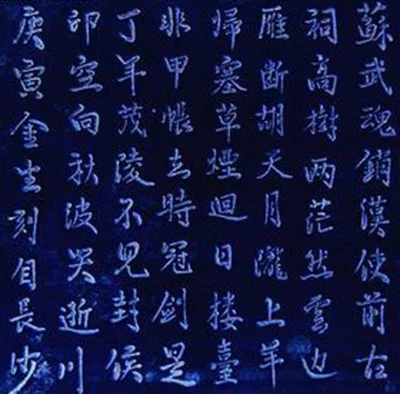 蘇武魂銷漢使前古
祠高樹两茫然雲边
雁斷胡天月隴上羊
歸塞草煙迴日樓臺
非甲帳去時冠劍是
丁年茂陵不見封侯
印空向秋波哭逝川
庚寅金生刻自長沙